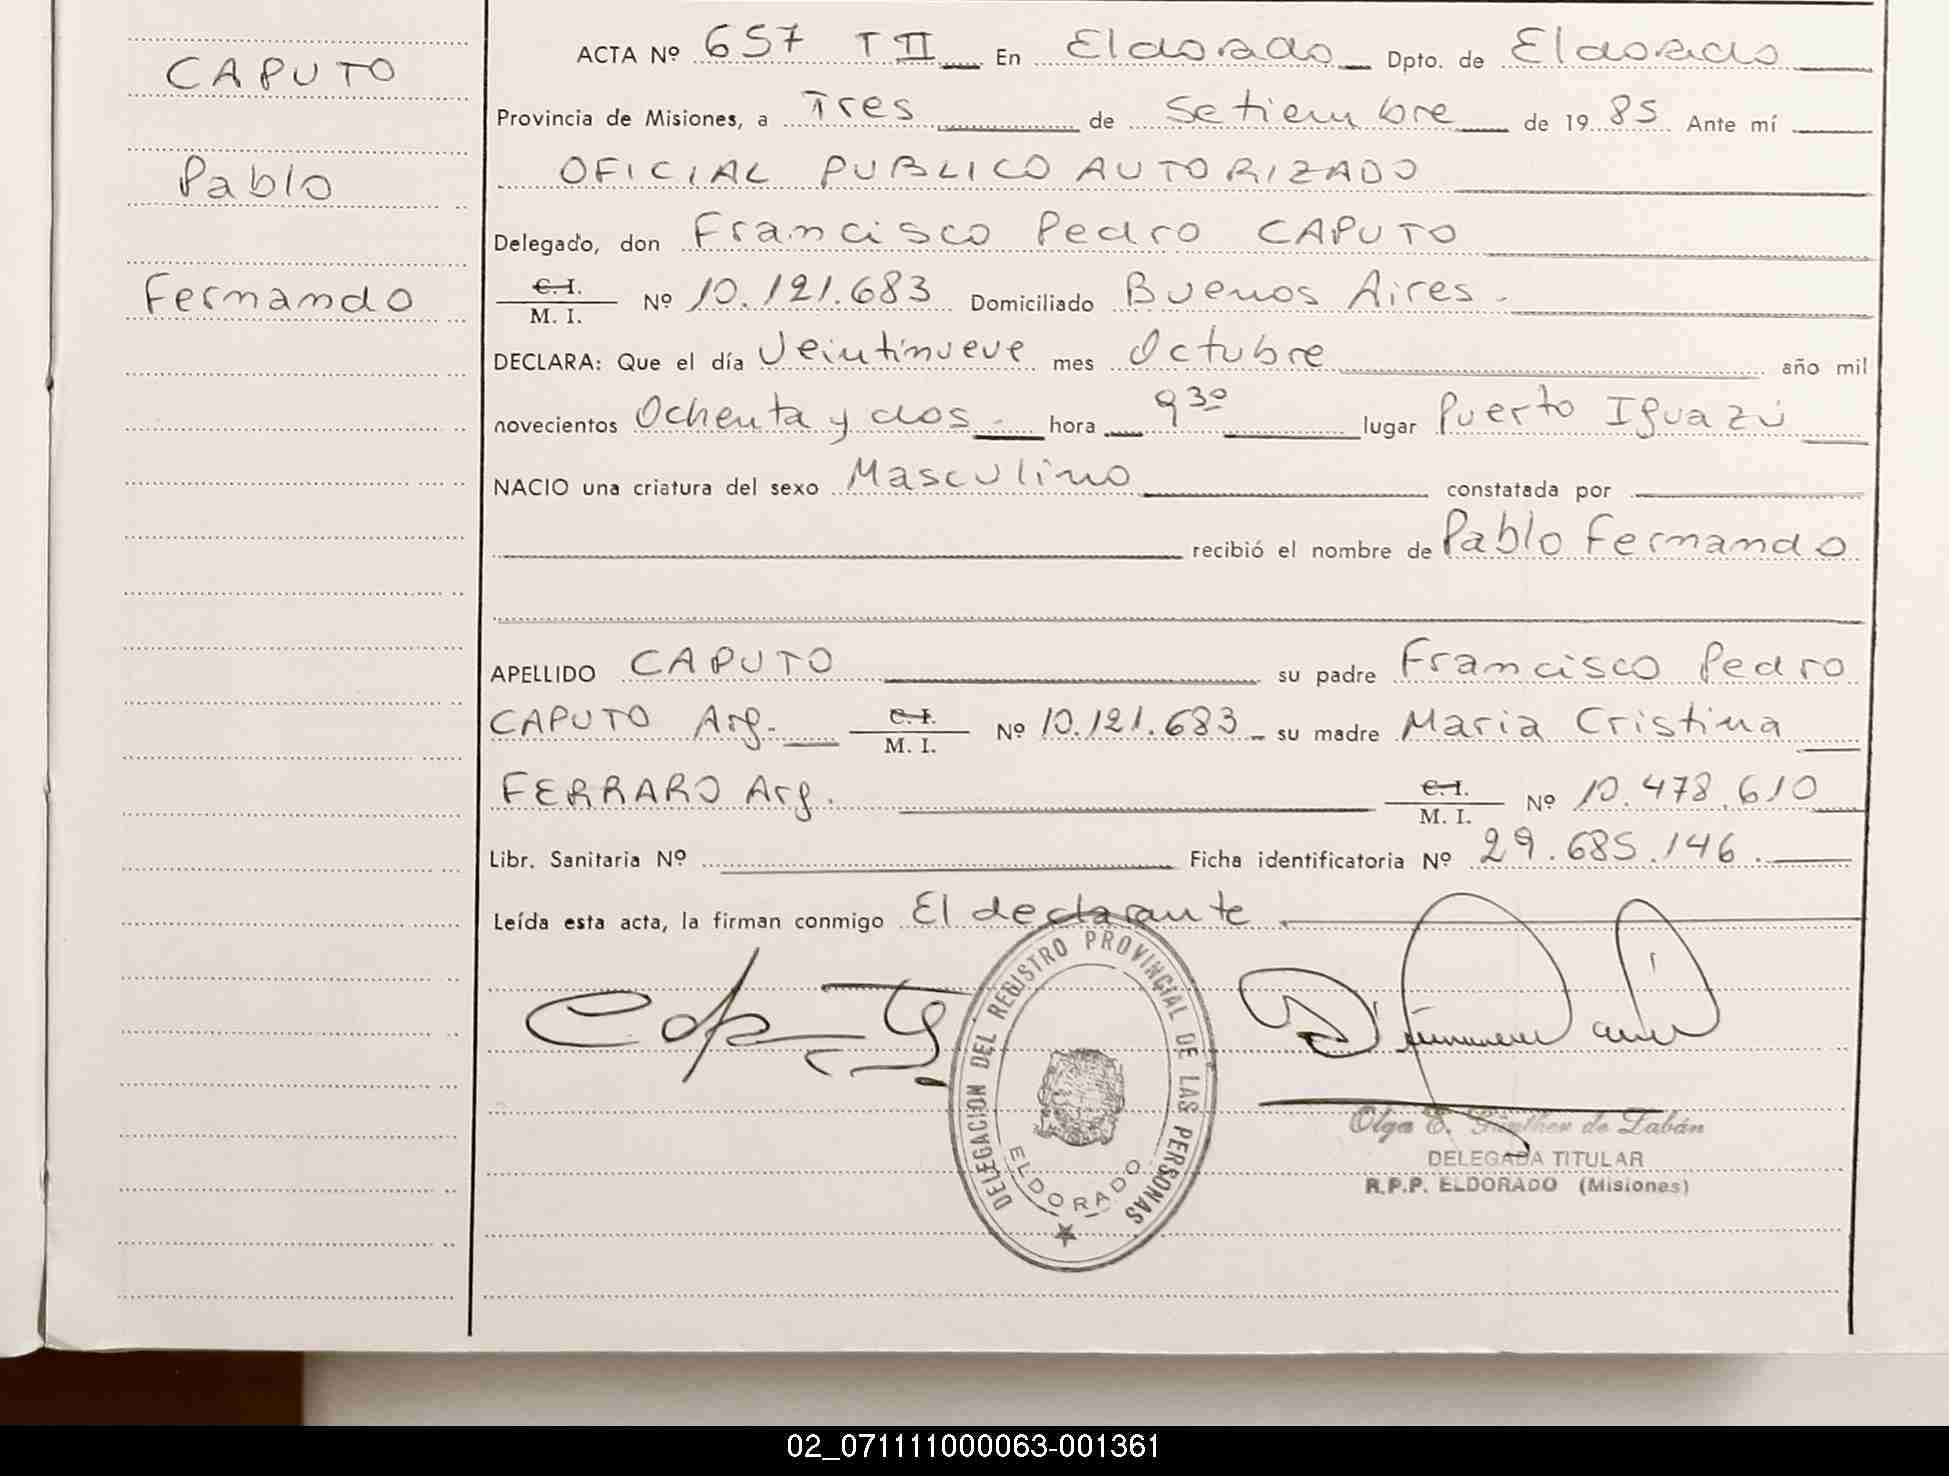 CAPUTO
Pablo
Fernando
ACTA Nº 657 T II En Eldorado Dpto. de Eldorado
Provincia de Misiones, a Tres de Setiembre de 1985 Ante mí
OFICIAL PUBLICO AUTORIZADO
Delegado, don Francisco Pedro CAPUTO
C. I.
M. I. Nº 10.121.683 Domiciliado Buenos Aires.
DECLARA: Que el día Veintinueve mes Octubre año mil
novecientos Ochenta y dos. hora 9 30 lugar Puerto Iguazú
NACIO una criatura del sexo Masculino constatada por
recibió el nombre de Pablo Fernando
APELLIDO CAPUTO su padre Francisco Pedro
CAPUTO Arg. C. I. M. I. Nº 10.121.683 su madre Maria Cristina
FERRARO Arg. C. I. M. I. Nº 10.478.610
Libr. Sanitaria Nº Ficha identificatoria Nº 29.685.146.
Leída esta acta, la firman conmigo El declarante
DELEGACION DEL REGISTRO PROVINCIAL DE LAS PERSONAS
ELDORADO
Olga E. Günther de Labán
DELEGADA TITULAR
R.P.P. ELDORADO (Misiones)
02_071111000063-001361